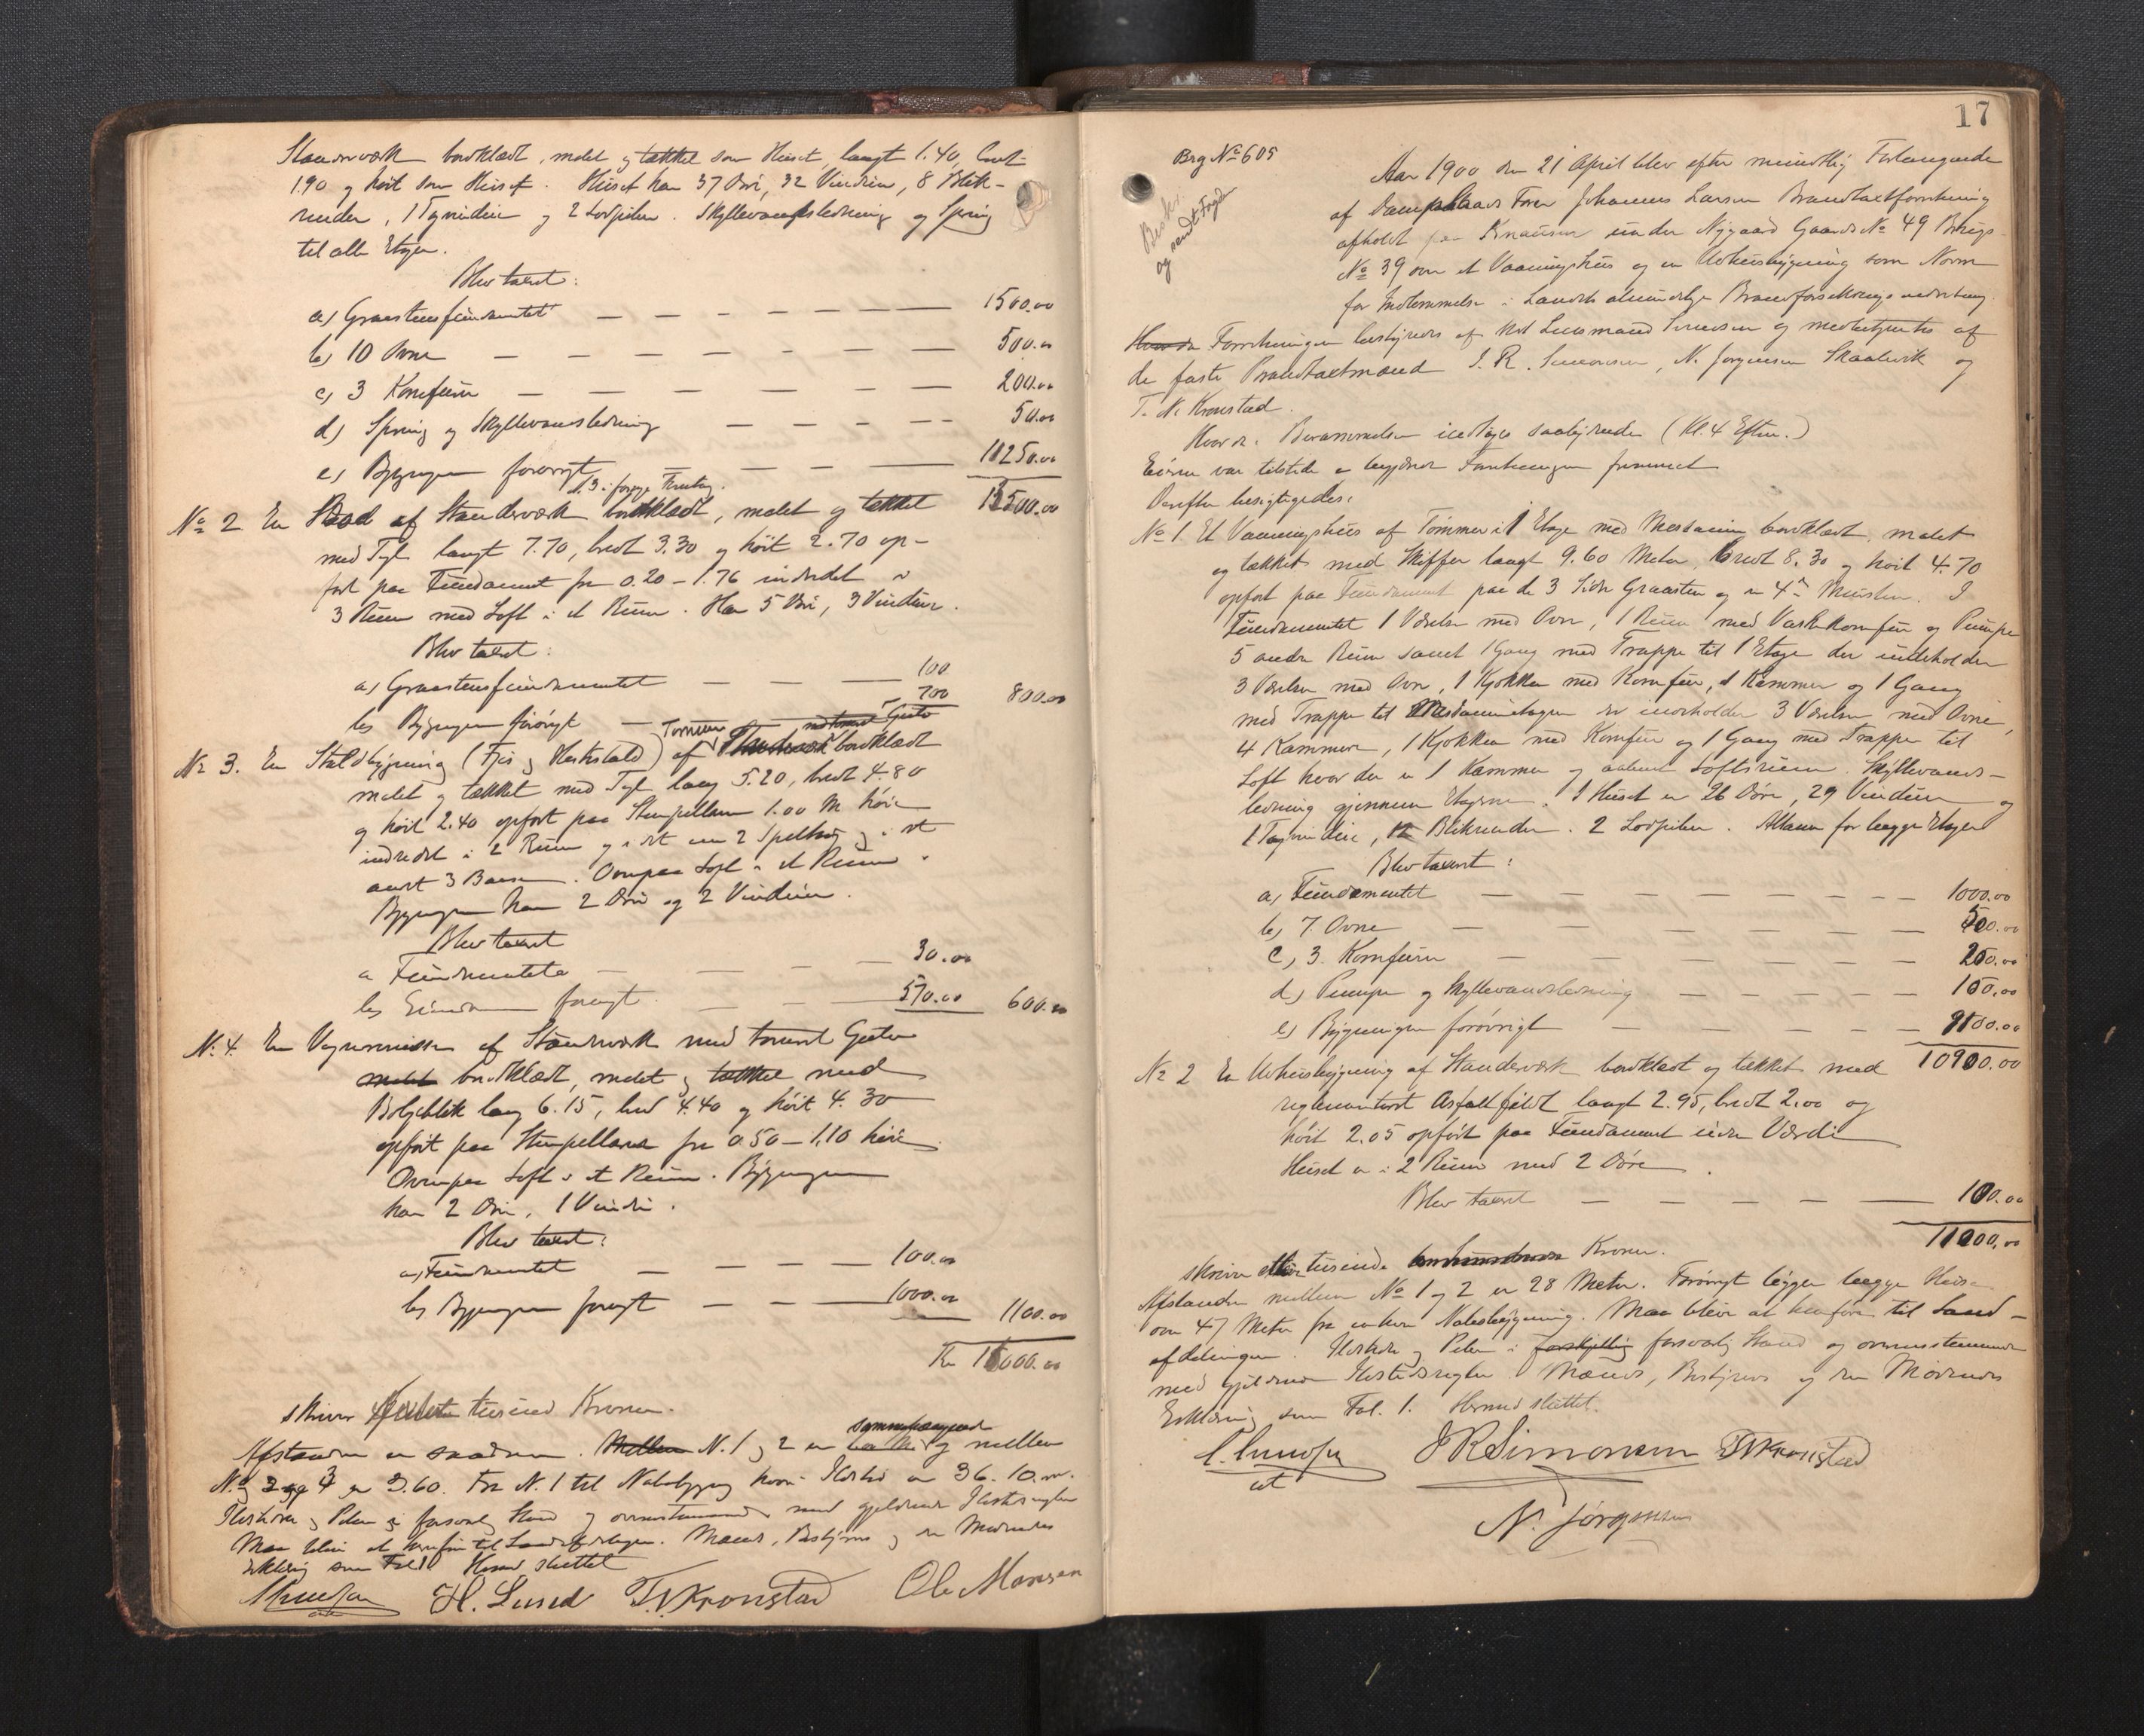 Standerværk bordklædt, malet og tækket som Huset, langt 1.40, bredt
1.90 og høit som Huset. Huset har 37 Døre, 32 Vinduer, 8 Blik-
render, 1 Tagvindue og 2 Lodpiber. Skyllevandsledning og Spring
til alle Etager.
Blev taxeret:
a) Graastensfundamentet — 1500.00
b) 10 Ovne — 500.00
c) 3 Komfurer — 200.00
d) Spring og Skyllevandsledning — 50.00
e) Bygningen forøvrigt — 11250.00
13500.00
No 2 En Bod af Standerværk bordklædt, malet og tækket
med Tegl langt 7.70, bredt 3.30 og høit 2.70 op-
ført paa Fundament fra 0.20 – 1.76 indredet i
3 Rum med Loft i et Rum. Har 5 Døre, 3 Vinduer.
Blev taxeret:
a) Graastensfundamentet — 100
b) Bygningen forøvrigt — 700 800.00
No 3. En Staldbygning (Fjøs og Hestestald) af Tømmer bordklædt
malet og tækket med Tegl lang 5.20, bredt 4.80
og høit 2.40 opført paa Steenpillarer 1.00 M høie
indredet i 2 Rum og i det ene 2 Spiltoug og i det
andet 3 Baase. Ovenpaa Loft i et Rum.
Bygningen har 2 Døre og 2 Vinduer.
Blev taxeret
a Fundamentet — 30.00
b) forøvrigt — 570.00 600.00
No 4. En Vognremisse af Standerværk med tømret Gulv
bordklædt, malet og tækket med
Bølgeblik lang 6.15, bred 4.40 og høit 4.30
opført paa Steenpillarer fra 0.50 – 1.10 høie
Ovenpaa Loft i et Rum. Bygningen
har 2 Døre, 1 Vindue.
Blev taxeret:
a) Fundamentet — 100.00
b) Bygningen forøvrigt — 1000.00 1100.00
Kr 16000.00
skriver tusind Kroner.
Afstanden er saadan. Mellem N. 1 og 2 er sammenhængende og mellem
No 3 og 4 er 3.60. Fra N. 1 til Nabobygning hvori Ildsted er 36.10 m.
Ildsteder og Piber i forsvarlig Stand og overensstemmende med gjeldende Ildstedsregler
Maa blive at henføre til Landafdelingen. Mænds, Bestyrers og den Mødendes
Erklæring som Fol 1 Hermed sluttet
H. Lund T. N. Kronstad Ole Monsen
17
Brg No 605
Beskr.
og sendt Fogden
Aar 1900 den 21 April blev efter mundtlig Forlangende
af Dampskibs Fører Johannes Larsen Brandtaxtforretning
afholdt paa Knausen under Nygaard Gaards No 49 Brugs
No 39 over et Vaaningshus og en Udhusbygning som Norm
for Indlemmelse i Landets almindelige Brandforsikringsindretning.
Forretningen bestyredes af kst Lensmand og medbetjentes af
de faste Brandtaxtmænd J. R. Simonsen, N. Jørgensen Skaalevik og
T. N. Kronstad.
Hvor da i Berammelsen iagttages saalydende (Kl. 4 Efterm.)
Eieren var tilstede og begjærede Forretningen fremmet
Derefter besigtigedes:
No 1. Et Vaaningshus af Tømmer i 1 Etage med Mesanin bordklædt, malet
og tækket med Skiffer langt 9.60 Meter, bredt 8.30 og høit 4.70
opført paa Fundament paa de 3 Sider Graasten og den 4de Mursten. I
Fundamentet 1 Værelse med Ovn, 1 Rum med Vaskekomfur og Pumpe
5 andre Rum samt 1 Gang med Trappe til 1 Etage der indeholder
3 Værelser med Ovn, 1 Kjøkken med Komfur, 1 Kammer og 1 Gang
med Trappe til Mesaninetagen der indeholder 3 Værelser med Ovne,
4 Kammere, 1 Kjøkken med Komfur og 1 Gang med Trappe til
Loft hvor der er 1 Kammer og aabent Loftsrum. Skyllevands-
ledning gjennem Etagerne. I Huset er 26 Døre, 29 Vinduer og
1 Tagvindue, 12 Blikrender. 2 Lodpiber. Altaner for begge Etager
Blev taxeret:
a) Fundamentet — 1000.00
b) 7 Ovne — 500.00
c) 3 Komfurer — 200.00
d) Pumpe og Skyllevandsledning — 100.00
e) Bygningen forøvrigt — 9100.00
10900.00
No 2 En Udhusbygning af Standerværk bordklædt og tækket med
reglementeret Asfaltfildt langt 2.95, bredt 2.00 og
høit 2.05 opført paa Fundament uden Værdi
Huset er i 2 Rum med 2 Døre.
Blev taxeret — 100.00
11000.00
skriver elleve tusinde Kroner.
Afstanden mellem No 1 og 2 er 28 Meter. Forøvrigt ligger begge Huse
over 47 Meter fra enhver Nabobebygning. Maa blive at henføre til Land-
afdelingen. Ildsteder og Piber i forsvarlig Stand og overensstemmende
med gjeldende Ildstedsregler. Mænds, Bestyrers og den Mødendes
Erklæring som Fol. 1. Hermed sluttet.
J R Simonsen T N Kronstad
cst
N. Jørgensen